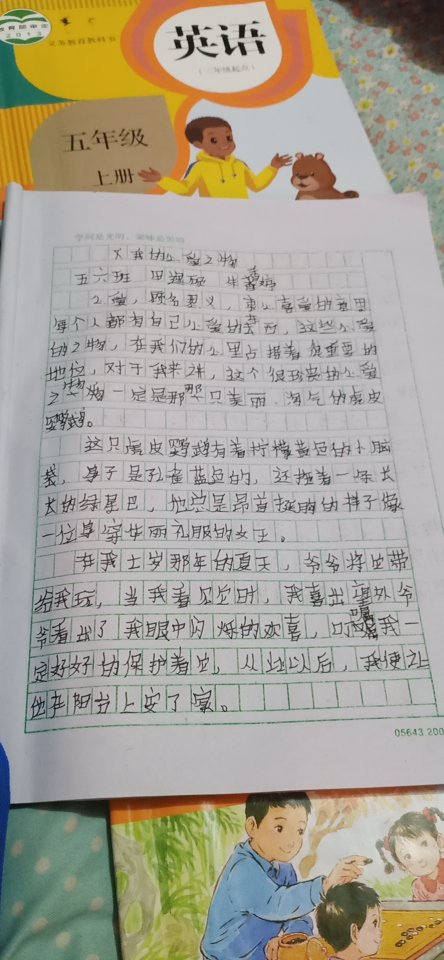 教育部审定
2013
义务教育教科书
英语
(三年级起点)
五年级
上册
学问是光明,蒙昧是黑暗
《我的心爱之物
五六班
心爱,顾名思义,衷心喜爱的意思
每个人都有自己心爱的东西,这些心爱
的之物,在我们的心里占据着很重要的
地位,对于我来讲,这个很珍贵的心爱
之物一定是那只美丽、淘气的虎皮
鹦鹉。
这只虎皮鹦鹉有着柠檬黄色的小脑
袋,身子是孔雀蓝色的,还拖着一条长
长的绿星巴,他总是昂首挺胸的样子像
一位身穿华丽礼服的女王。
在我七岁那年的夏天,爷爷将它带
给我玩,当我看见它时,我喜出望外爷
爷看出了我眼中闪烁的欢喜,叮嘱我一
定好好的保护着它,从此以后,我便让
他在阳台上安了家。
05643 200